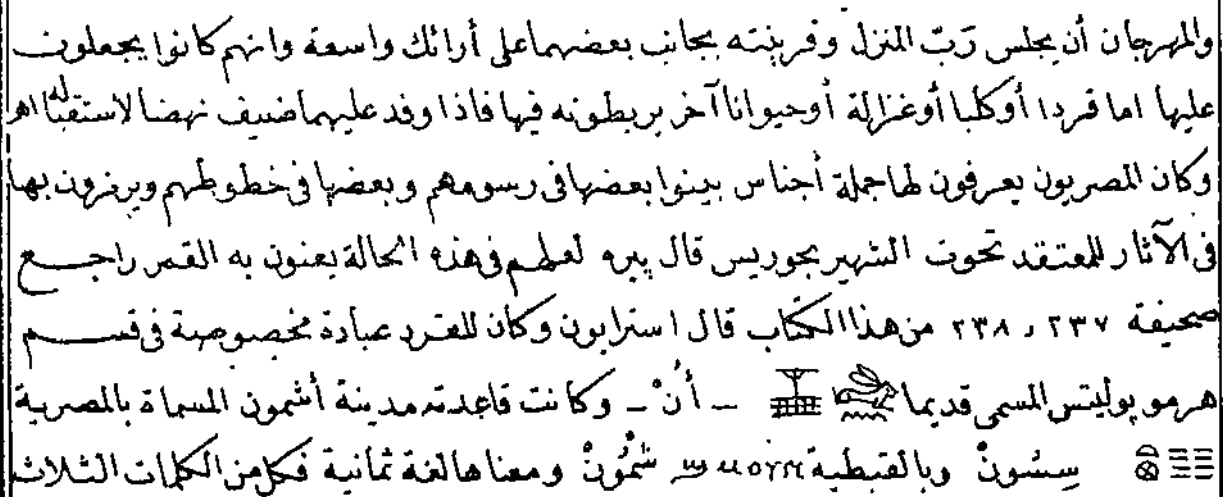 والمهرجان أن يجلس رَبّ المنزل وقرينته بجانب بعضهما على أرائك واسعة وانهم كانوا يجعلون
عليها اما قردا أوكلبا أوغزالة أوحيوانا آخر يربطونه فيها فاذا وفد عليهما ضيف نهضا لاستقباله اهـ
وكان المصريون يعرفون لها جملة أجناس بينوا بعضها فى رسومهم وبعضها فى خطوطهم ويرمزون بها
فى الآثار للمعتقد تحوت الشهير بجوريس قال ييره لعلهم فى هذه الحالة يعنون به القمر راجع
صحيفة ٢٣٧ و ٢٣٨ من هذا الكتاب قال استرابون وكان للقرد عبادة مخصوصة فى قسم
هرموبوليتس المسمى قديما ـ أنْ ـ وكانت قاعدته مدينة أشمون المسماة بالمصرية
سِسُونْ وبالقبطية ϣⲙⲟⲩⲛ شمُونْ ومعناها لغة ثمانية فكل من الكلمات الثلاث